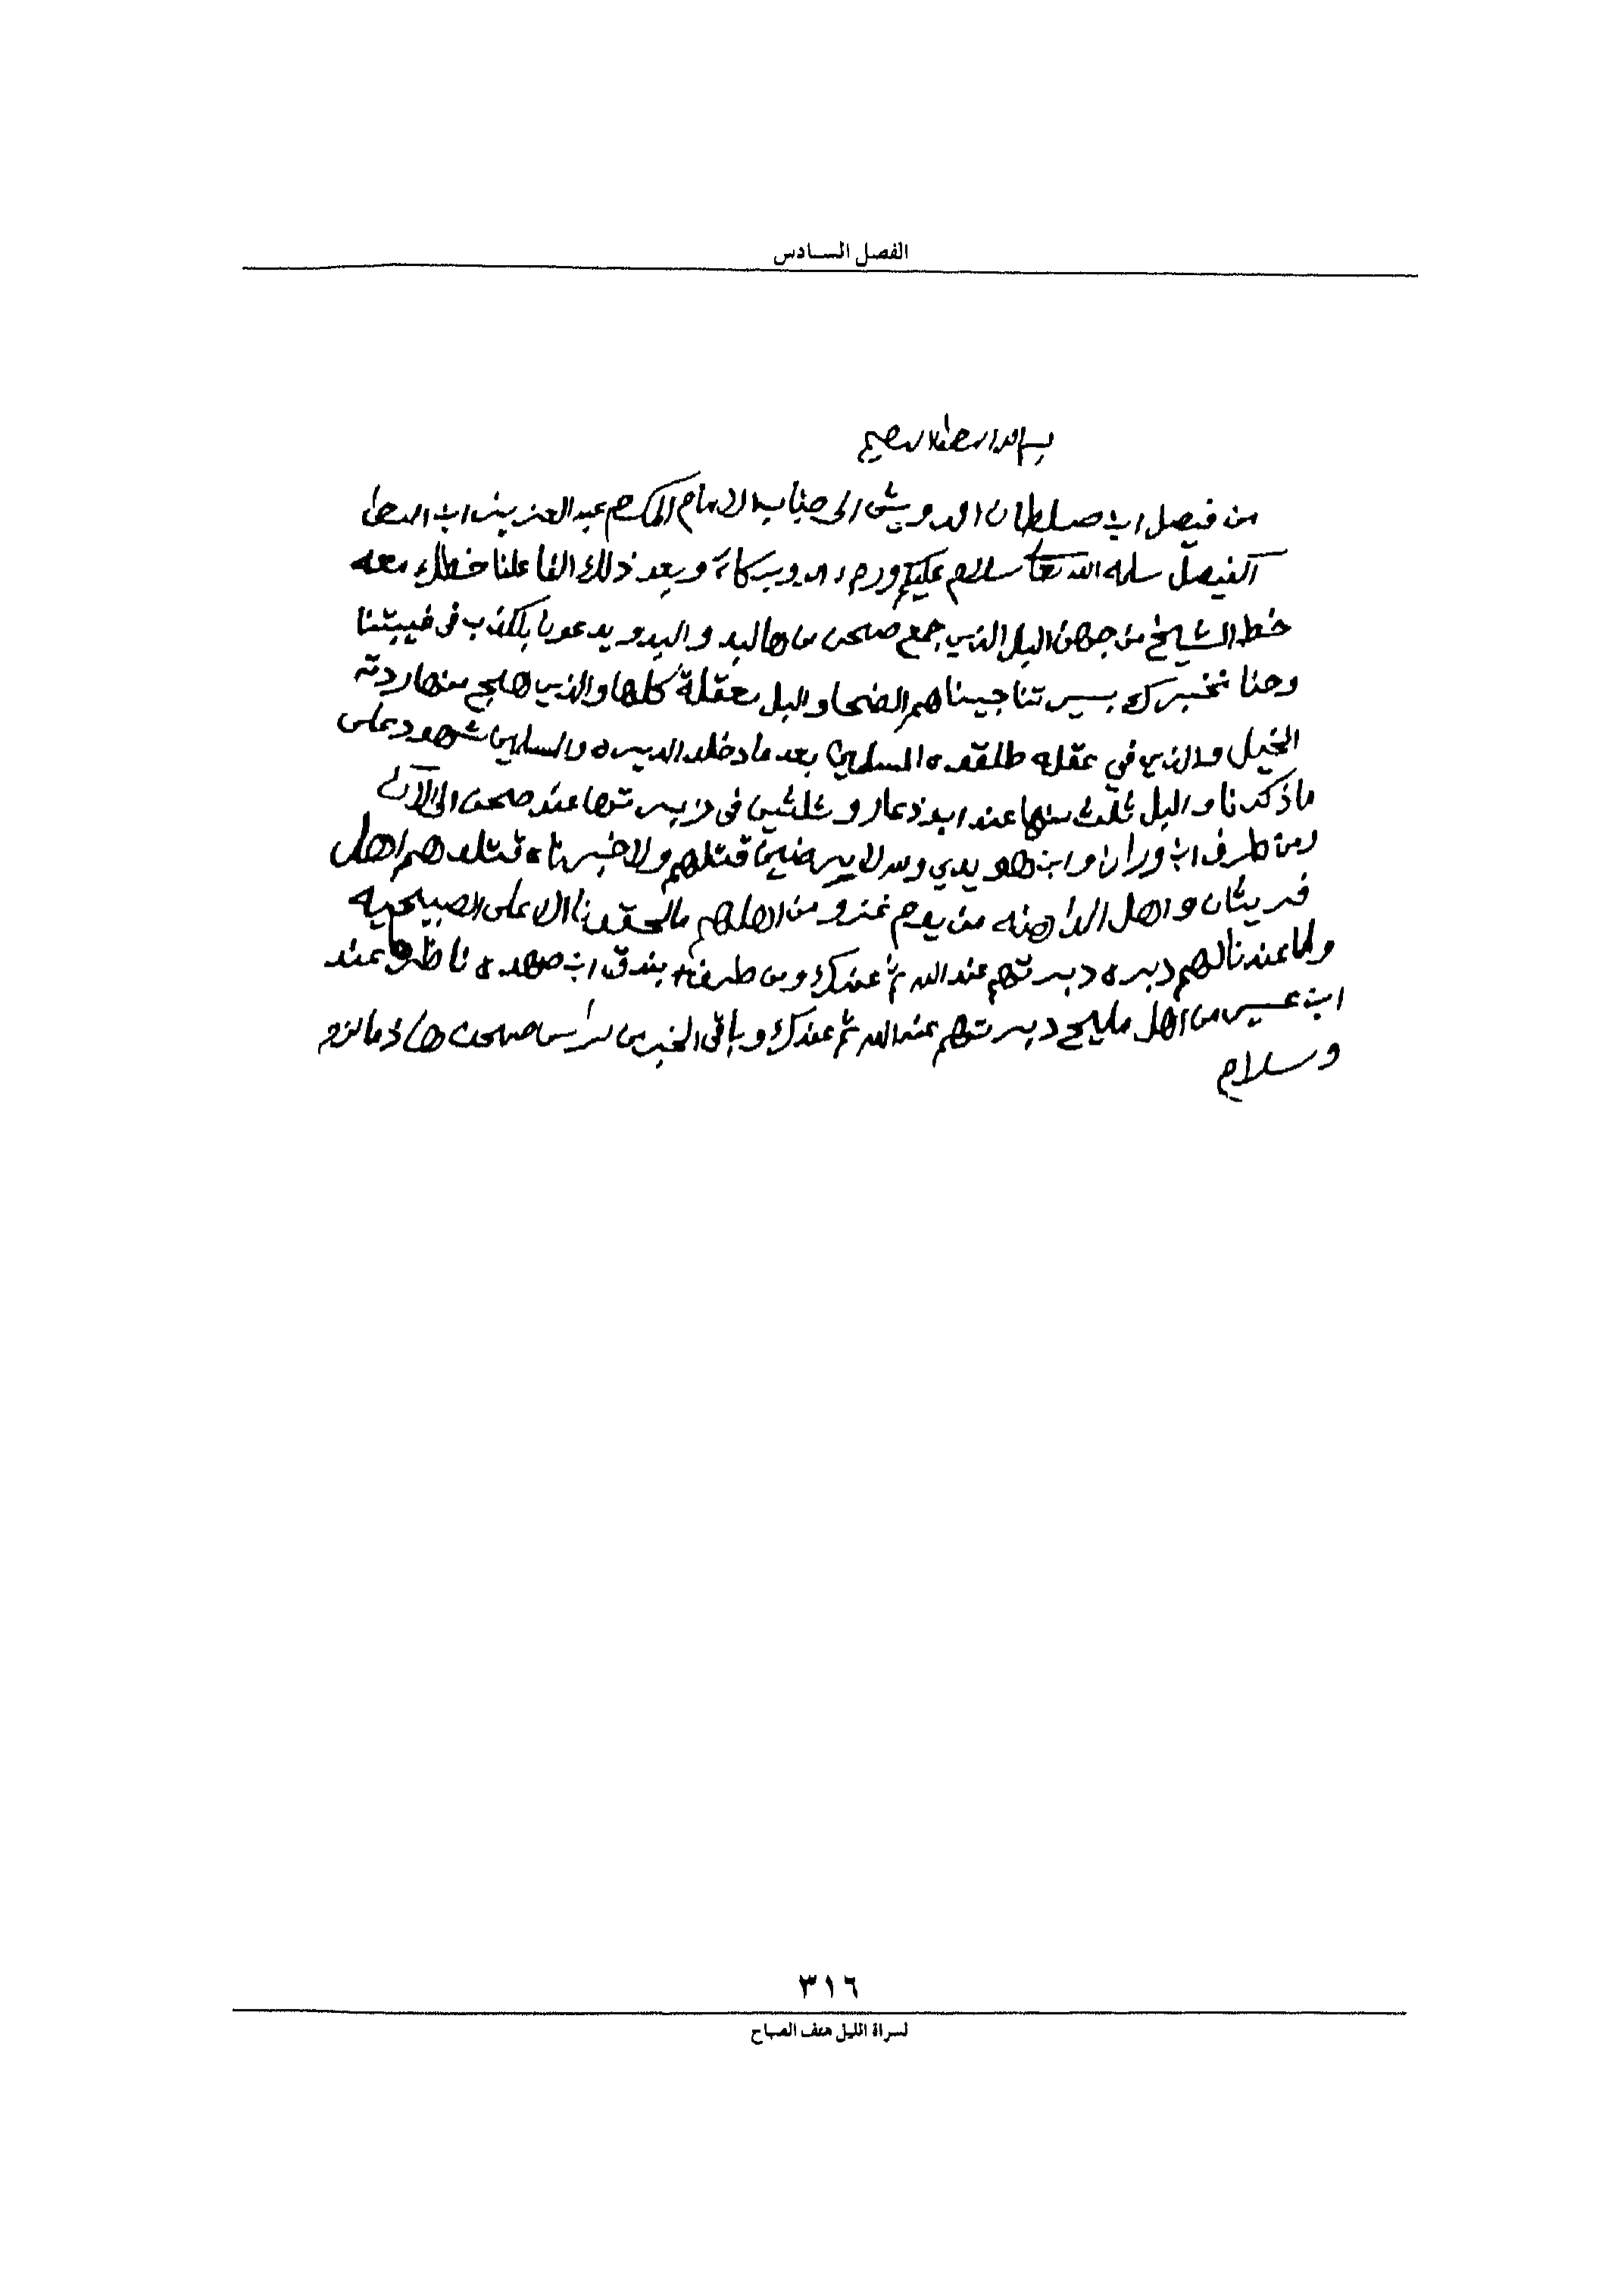 الفصل السادس
بسم الله الرحمن الرحيم
من فيصل ابن صلطان الدويش الى جناب الامام المكرم عبدالعزيز ابن الرحمن
آلفيصل سلمه الله تعا سلام عليكم ورحمة الله وبركاته وبعد ذلك الفا علنا خطك معه
خط الشايخ من جهة البل الذي جمع صحن من هالبد والبدو يدعونا بلكذب في غيبتنا
وحنا نخبرك بسيرتنا جيناهم الضحا والبل معقلة كلها والذي هج منها ردته
الخيل والذي في عقله طلقوه المسلمين بعد ما دخلو الديره والمسلمين شهود على
ماذكرنا والبل ثلث منها عند ابو ذعار وثلثين في عند صحن الى الآن
ومن طرف ابن وابن هويدي قتلهم ولا خبرناه قتلوهم اهل
قريثان واهل الداهنه من يوم غزو من اهلهم مالحقونا الا على الصبيحيه
ولما عندنا لهم دبره دبرتهم عند الله ثم عندك ومن طرف بندق ابن عند
ابن من اهل مليح دبرتهم عند الله ثم عندك وباقي الخبر من راس صحن
وسلام
٣١٦
لسراة الليل هتف الصباح